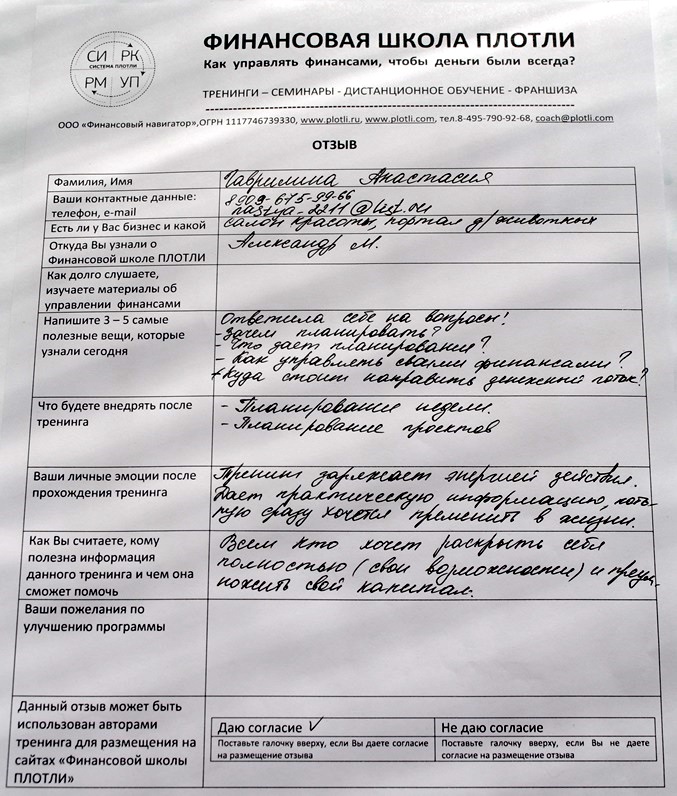 СИ РК
СИСТЕМА ПЛОТЛИ
РМ УП
ФИНАНСОВАЯ ШКОЛА ПЛОТЛИ
Как управлять финансами, чтобы деньги были всегда?
ТРЕНИНГИ – СЕМИНАРЫ - ДИСТАНЦИОННОЕ ОБУЧЕНИЕ - ФРАНШИЗА
ООО «Финансовый навигатор»,ОГРН 1117746739330, www.plotli.ru, www.plotli.com, тел.8-495-790-92-68, coach@plotli.com
ОТЗЫВ
Фамилия, Имя
Гаврилина Анастасия
Ваши контактные данные:
телефон, e-mail
8909-675-99-66
nastya-2211@list.ru
Есть ли у Вас бизнес и какой
салон красоты, портал д/животных
Откуда Вы узнали о
Финансовой школе ПЛОТЛИ
Александр М.
Как долго слушаете,
изучаете материалы об
управлении финансами
Напишите 3 – 5 самые
полезные вещи, которые
узнали сегодня
Ответила себе на вопросы!
- Зачем планировать?
- Что дает планирование?
- Как управлять своими финансами?
+ Куда стоит направить денежный поток?
Что будете внедрять после
тренинга
- Планирование недели.
- Планирование проектов
Ваши личные эмоции после
прохождения тренинга
Тренинг заряжает энергией действия.
Дает практическую информацию, кото-
рую сразу хочется применить в жизни.
Как Вы считаете, кому
полезна информация
данного тренинга и чем она
сможет помочь
Всем кто хочет раскрыть себя
полностью (свои возможности) и преум-
ножить свой капитал.
Ваши пожелания по
улучшению программы
Данный отзыв может быть
использован авторами
тренинга для размещения на
сайтах «Финансовой школы
ПЛОТЛИ»
Даю согласие ✓
Поставьте галочку вверху, если Вы даете согласие
на размещение отзыва
Не даю согласие
Поставьте галочку вверху, если Вы не даете
согласие на размещение отзыва